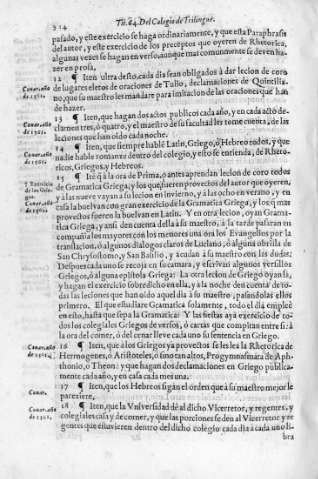 914 Tit. 64. Del Colegio de Trilingue.
pasado, y este exercicio se haga ordinariamente, y que esta Paraphrasis
del autor, y este exercicio de los preceptos que oyeren de Rhetorica,
algunas vezes se hagan en verso, aunque mas comunmente se deven ha-
zer en prosa.
12 ¶ Iten ultra desto, cada dia sean obligados à dar lecion de coro
de lugares eletos de oraciones de Tulio, declamaciones de Quintilia-
no, que su maestro les mandare para imitacion de las oraciones que han
de hazer.
13 ¶ Iten, que hagan dos actos publicos cada año, y en cada acto de-
clamen tres, ò quatro, y el maestro de su facultad les tome cuenta, de las
leciones que han oìdo cada noche.
14 ¶ Iten, que siempre hablẽ Latin, Griego, ò Hebreo todos, y que
nadie hable romance dentro del colegio, y esto se entienda, de Rheto-
ricos, Griegos, y Hebreos.
15 ¶ Itẽ q̃ à la ora de Prima, ò antes aprendan lecion de coro todos
de Gramatica Griega, y los que fueren provectos del autor que oyeren,
y à las nueve vayan à su lecion en invierno, y à las ocho en verano, y en
casa la buelvan con gran exercicio de la Gramatica Griega, y los q̃ mas
provectos fueren la buelvan en Latin. Y en otra lecion, oyan Grama-
tica Griega, y ansi den cuenta della à su maestro, à la tarde pasaran en
compañia los mayores con los menores una ora los Evangelios por la
translacion, ò algunos dialogos claros de Luciano, ò alguna obrilla de
San Chrysostomo, y San Basilio, y acudan à su maestro con las dudas:
Despues cada uno se recoja en su camara, y escrivan algunos versillos
Griegos, ò alguna epistola Griega: La otra lecion de Griego oyan la,
y hagan el exercicio sobredicho en ella, y à la noche den cuenta de to-
das las leciones que han oìdo aquel dia à su maestro, pasandolas ellos
primero. El que estudiare Gramatica solamente, todo el dia emplee
en esto, hasta que sepa la Gramatica: Y las fiestas aya exercicio de to-
dos los colegiales Griegos de versos, ò cartas que compitan entre sì: à
la ora del comer, ò del cenar lleve cada uno su sentencia en Griego.
16 ¶ Iten, que a los Griegos ya provectos se les lea la Rhetorica de
Hermogenes, ò Aristoteles, ò sino tan altos, Progymnasmata de Aph-
thonio, o Theon: y que hagan dos declamaciones en Griego publica-
mente cada año, y en casa cada mes una.
17 ¶ Iten, que los Hebreos sigan el orden que à su maestro mejor le
pareziere.
18 ¶ Iten, que la Vniversidad dè al dicho Vicerretor, y regentes, y
colegiales casa y de comer, y que las porciones se den al Vicerretor y re-
gentes que estuvieren dentro del dicho colegio cada dia à cada uno li-
bra